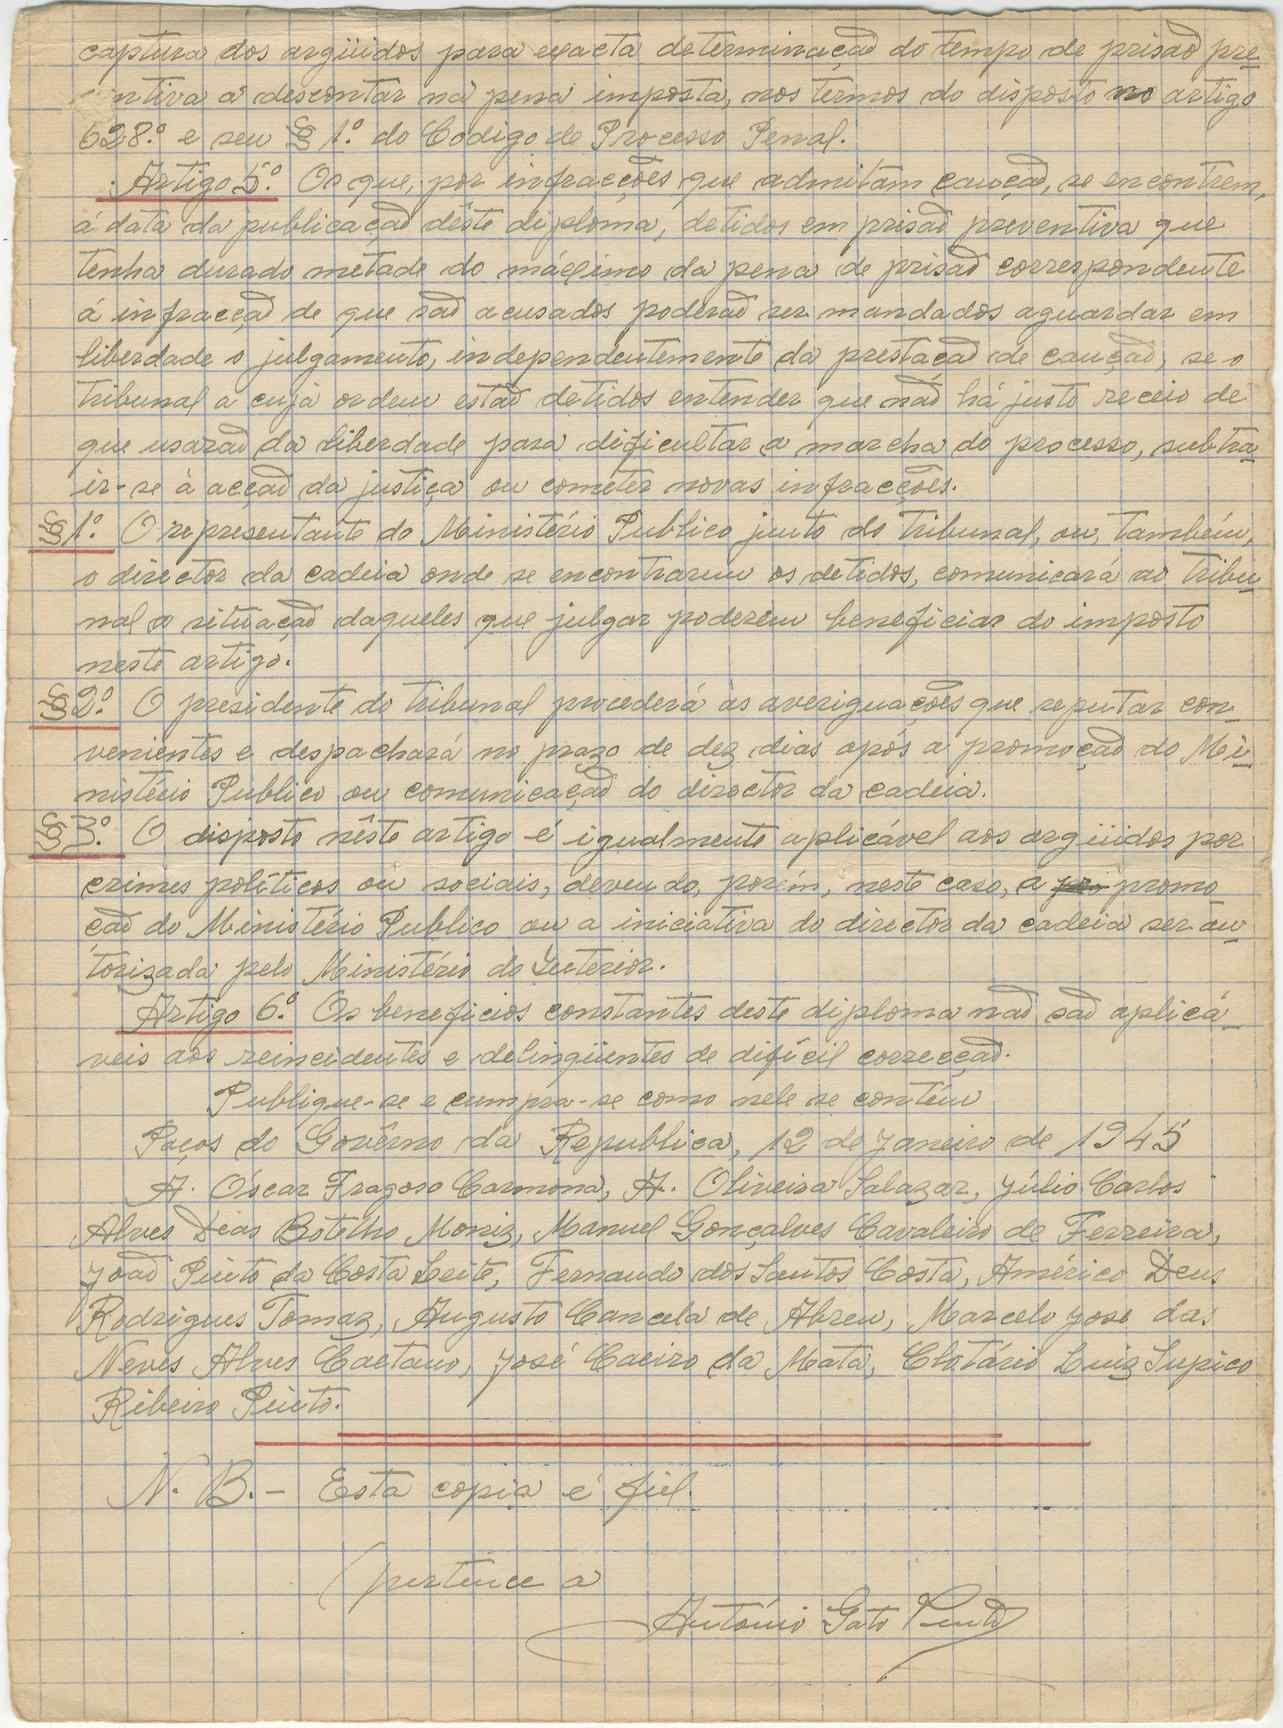 captura dos argüidos para exacta determinação do tempo de prisão pre-
ntiva a descontar na pena imposta, nos termos do disposto no artigo
628.º e seu § 1.º do Codigo de Processo Penal.
Artigo 5.º Os que, por infracções que admitam caução, se encontrem,
á data da publicação dêste diploma, detidos em prisão preventiva que
tenha durado metade do máximo da pena de prisão correspondente
á infracção de que são acusados poderão ser mandados aguardar em
liberdade o julgamento, independentemente da prestação de caução, se o
tribunal a cuja ordem estão detidos entender que não há justo receio de
que usarão da liberdade para dificultar a marcha do processo, subtra-
ir-se à acção da justiça ou cometer novas infracções.
§ 1.º O representante do Ministério Publico junto do tribunal, ou, também,
o director da cadeia onde se encontrarem os detidos, comunicará ao tribu-
nal a situação daqueles que julgar poderem beneficiar do imposto
neste artigo.
§ 2.º O presidente do tribunal procederá às averiguações que reputar con-
venientes e despachará no prazo de dez dias após a promoção do Mi-
nistério Publico ou comunicação do director da cadeia.
§ 3.º O disposto nêste artigo é igualmente aplicável aos argüidos por
crimes políticos ou sociais, devendo, porém, neste caso, a promo
ção do Ministério Publico ou a iniciativa do director da cadeia ser au-
torizada pelo Ministério do Interior.
Artigo 6.º Os beneficios constantes deste diploma não são aplicá-
veis aos reincidentes e delinqüentes de difícil correcção.
Publique-se e cumpra-se como nele se contém
Paços do Govêrno da Republica, 12 de Janeiro de 1945
A. Óscar Fragoso Carmona, A. Oliveira Salazar, Júlio Carlos
Alves Dias Botelho Moniz, Manuel Gonçalves Cavaleiro de Ferreira,
João Pinto da Costa Leite, Fernando dos Santos Costa, Américo Deus
Rodrigues Tomaz, Augusto Cancela de Abreu, Marcelo José das
Neves Alves Caetano, José Caeiro da Mata, Clotário Luiz Supico
Ribeiro Pinto.
N. B. - Esta copia é fiel.
(pertence a
António Gato